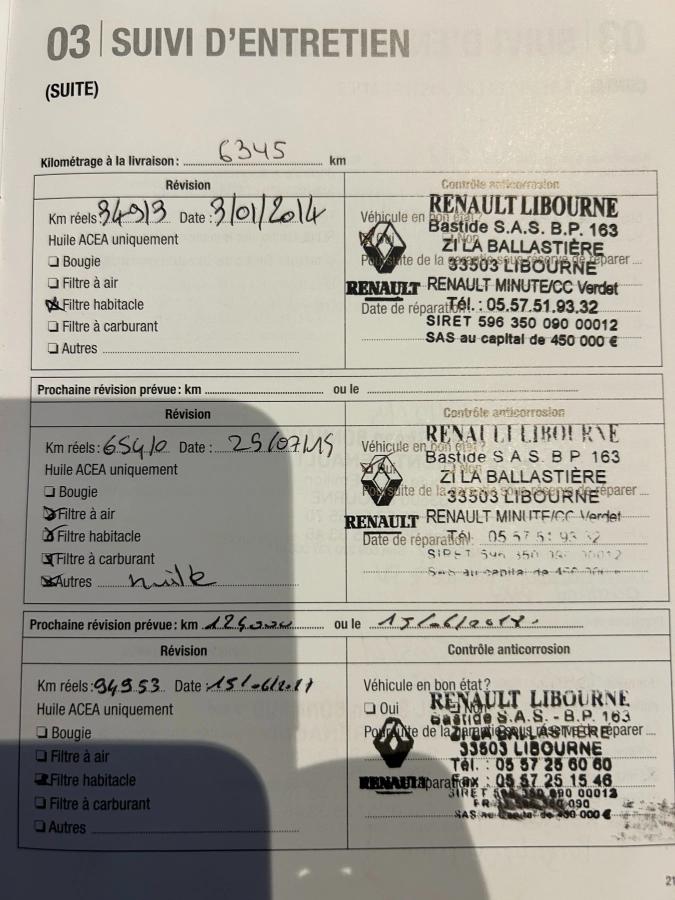 03 | SUIVI D'ENTRETIEN
(SUITE)
Kilométrage à la livraison : 6345 km
Révision
Km réels : 34913 Date : 3/01/2014
Huile ACEA uniquement
Bougie
Filtre à air
Filtre habitacle
Filtre à carburant
Autres
Contrôle anticorrosion
Véhicule en bon état ?
Oui Non
Poursuite de la garantie sous réserve de réparer
Date de réparation
RENAULT LIBOURNE
Bastide S.A.S. B.P. 163
ZI LA BALLASTIÈRE
33503 LIBOURNE
RENAULT RENAULT MINUTE/CC Verdet
Tél. : 05.57.51.93.32
SIRET 596 350 090 00012
SAS au capital de 450 000 €
Prochaine révision prévue : km ou le
Révision
Km réels : 65410 Date :
Huile ACEA uniquement
Bougie
Filtre à air
Filtre habitacle
Filtre à carburant
Autres huile
Contrôle anticorrosion
Véhicule en bon état ?
Oui Non
Poursuite de la garantie sous réserve de réparer
Date de réparation:
RENAULT LIBOURNE
Bastide S.A.S. B P 163
ZI LA BALLASTIÈRE
33503 LIBOURNE
RENAULT RENAULT MINUTE/CC Verdet
Tél. 05 57 51 93 32
SIRET 596 350 090 00012
SAS au capital de
Prochaine révision prévue : km 124000 ou le
Révision
Km réels : 94953 Date :
Huile ACEA uniquement
Bougie
Filtre à air
Filtre habitacle
Filtre à carburant
Autres
Contrôle anticorrosion
Véhicule en bon état ?
Oui Non
Poursuite de la garantie sous réserve de réparer
RENAULT LIBOURNE
Bastide S.A.S. - B.P. 163
ZI LA BALLASTIERE
33503 LIBOURNE
Tél. : 05 57 25 60 60
RENAULT Fax : 05 57 25 15 46
SIRET 596 350 090 00012
SAS au Capital de 450 000 €
21